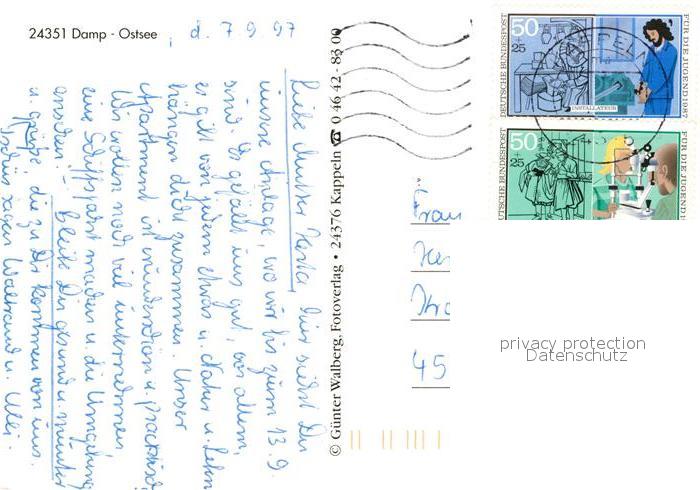 24351 Damp - Ostsee
d. 7 9 97
Liebe Mutter Herta hier siehst Du
unsere Anlage, wo wir bis zum 13.9.
sind. Es gefällt uns gut, vor allem,
es gibt von jedem etwas u. Natur u. Leben
hängen dicht zusammen. Unser
Appartment ist wunderschön u. praktisch
Wir wollen noch viel unternehmen
eine Schiffsfahrt machen u. die Umgebung
ansehen. Bleibe Du gesund u. munter
u. grüße die zu Dir kommen von uns.
Tschüs sagen Waltraud u. Uli.
© Günter Walberg, Fotoverlag • 24376 Kappeln ☎ 0 46 42 - 83 00
Frau
45
50
+25
DEUTSCHE BUNDESPOST
INSTALLATEUR
FÜR DIE JUGEND 1987
50
+25
DEUTSCHE BUNDESPOST
FÜR DIE JUGEND
privacy protection
Datenschutz